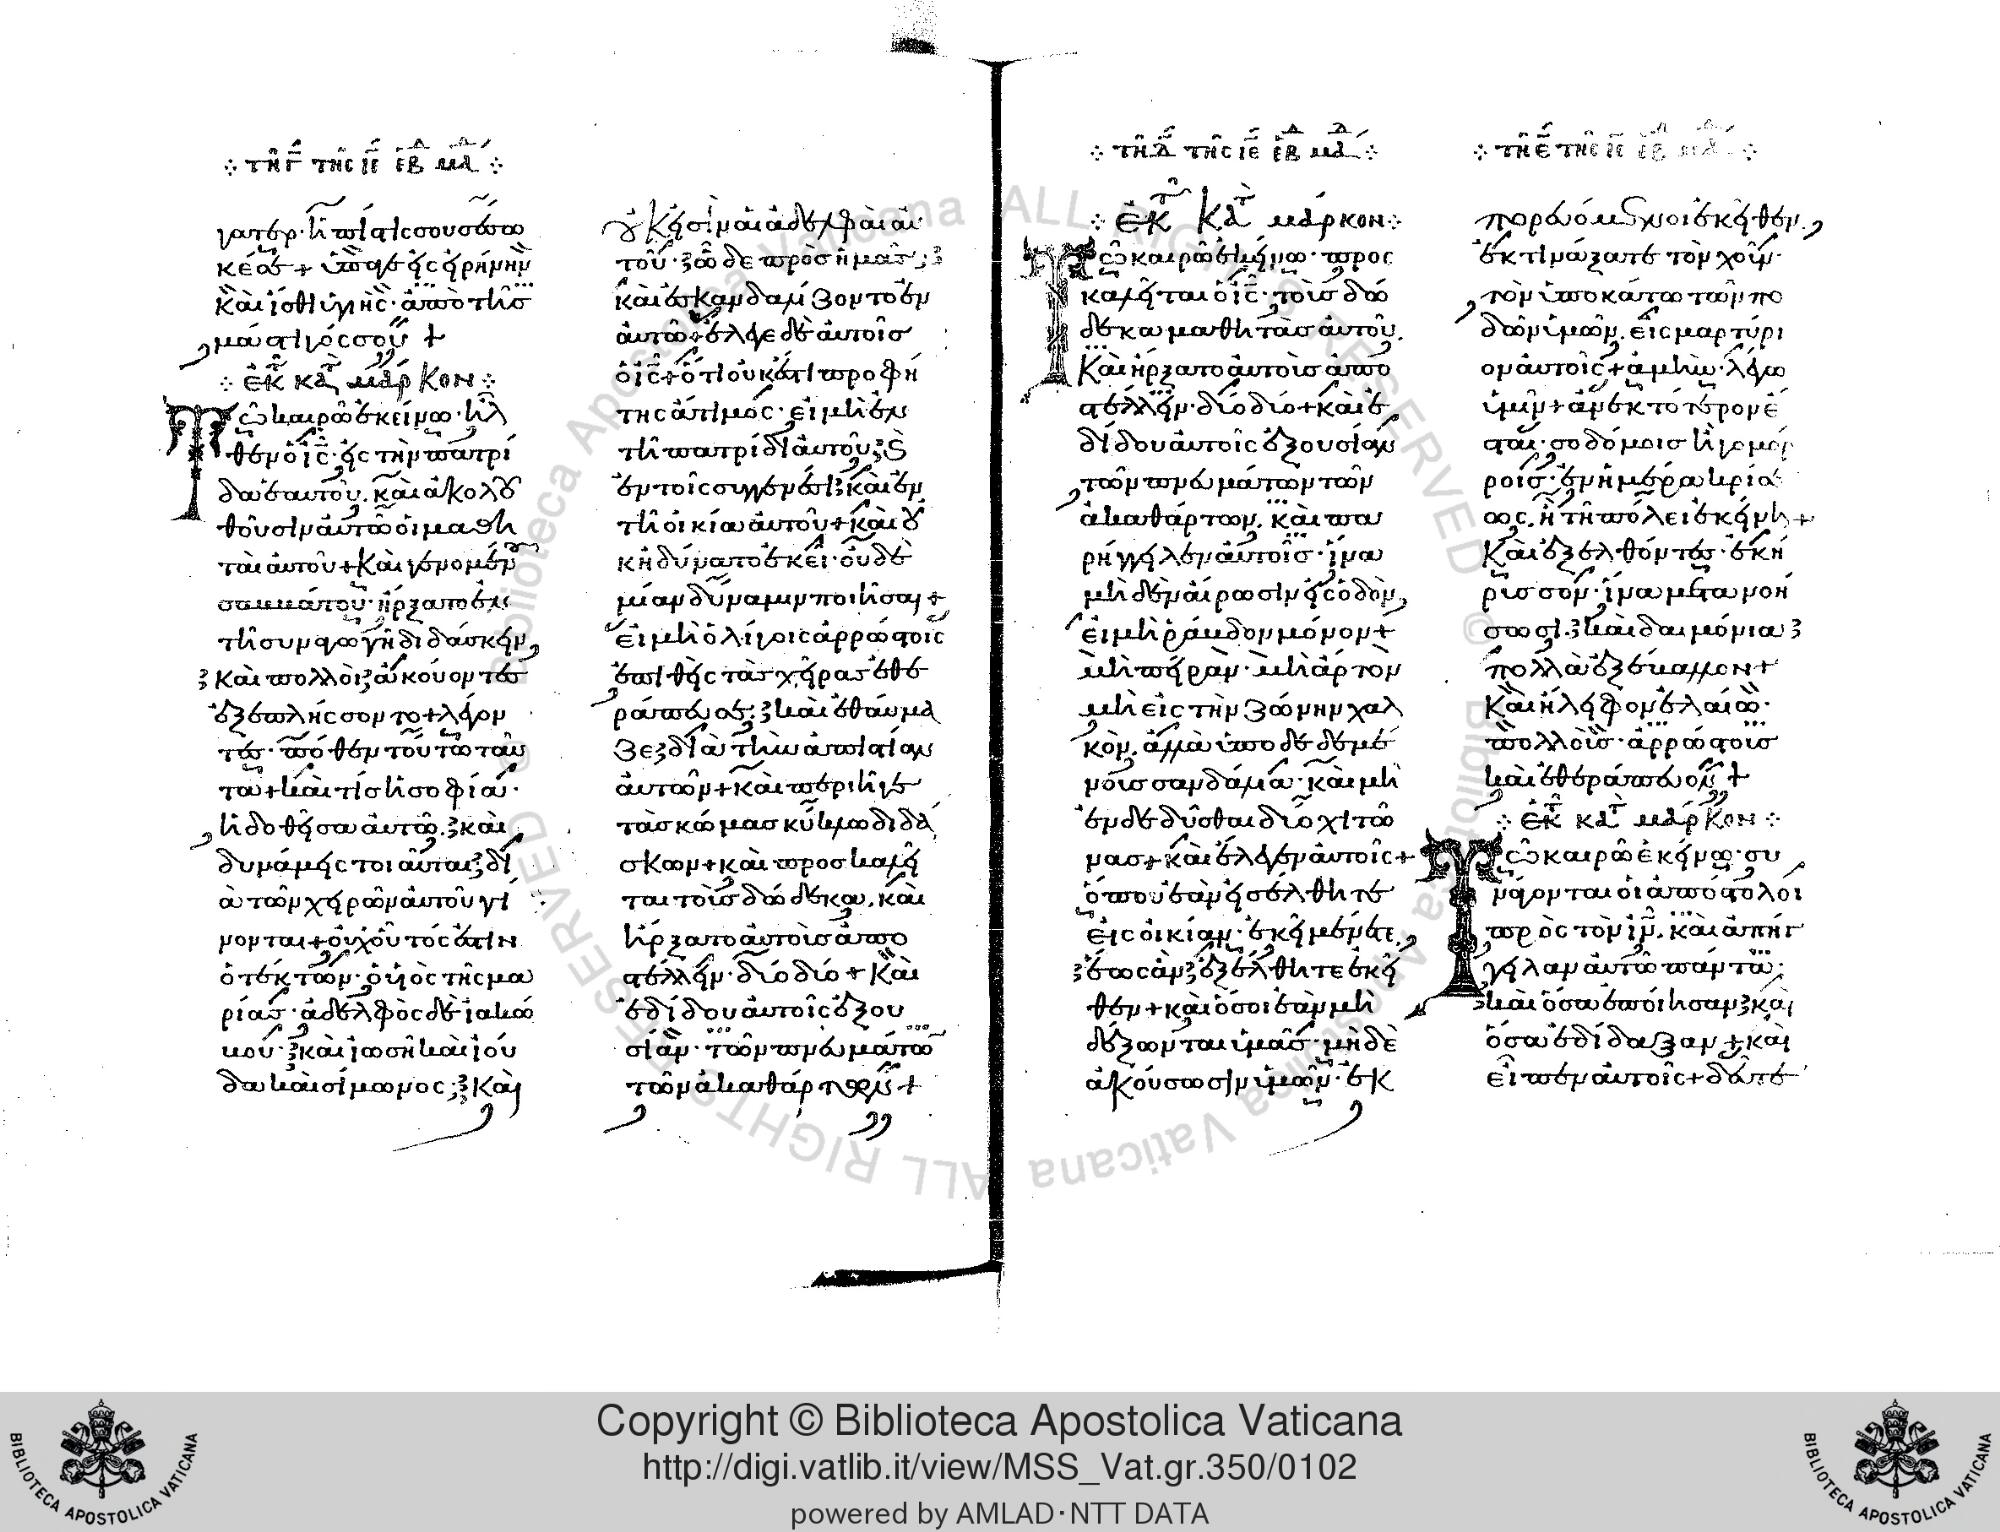 τῇ γ τῆς ιε ἑβδ μάδ
γατερ· ἡ πίστις σου σέσω
κέ σε + ὕπαγε εἰς εἰρήνην
καὶ ἴσθι ὑγιὴς· ἀπὸ τῆς
μάστιγός σου +
ἐκ τ κατ μάρκον
Τῶ καιρῶ ἐκείνω· ἦλ
θεν ὁ ις· εἰς τὴν πατρί
δα ἑαυτοῦ. καὶ ἀκολου
θοῦσιν αὐτῶ οἱ μαθη
ταὶ αὐτοῦ + καὶ γενομένου
σαββάτου· ἤρξατο ἐν
τῆ συναγωγῆ διδάσκειν,
καὶ πολλοὶ ἀκούοντες
ἐξεπλήσσοντο + λέγον
τες· πόθεν τούτω ταῦ
τα + καὶ τίς ἡ σοφία·
ἡ δοθεῖσα αὐτῶ. καὶ
δυνάμεις τοιαῦται δι
ὰ τῶν χειρῶν αὐτοῦ γί
νονται + οὐχ οὗτός ἐστιν
ὁ τέκτων· ὁ υἱὸς τῆς μα
ρίας· ἀδελφὸς δὲ ἰακώ
βου· καὶ ἰωσῆ καὶ ἰού
δα καὶ σίμωνος; καὶ
οὐκ εἰσὶν αἱ ἀδελφαὶ αὐ
τοῦ· ὧδε πρὸς ἡμᾶς;
καὶ ἐσκανδαλίζοντο ἐν
αὐτῶ + ἔλεγε δὲ αὐτοῖς
ὁ ις + ὅτι οὐκ ἔστι προφή
της ἄτιμος· εἰ μὴ ἐν
τῆ πατρίδι αὐτοῦ· καὶ
ἐν τοῖς συγγενέσι καὶ ἐν
τῆ οἰκία αὐτοῦ + καὶ οὐ
κ ἠδύνατο ἐκεῖ· οὐδε
μίαν δύναμιν ποιῆσαι +
εἰ μὴ ὀλίγοις ἀρρώστοις
ἐπιθεὶς τὰς χεῖρας ἐθε
ράπευσε· καὶ ἐθαύμα
ζε διὰ τὴν ἀπιστίαν
αὐτῶν + καὶ περιῆγε
τὰς κώμας κύκλω διδά
σκων + καὶ προσκαλεῖ
ται τοὺς δώδεκα. καὶ
ἤρξατο αὐτοὺς ἀπο
στέλλειν· δύο δύο + καὶ
ἐδίδου αὐτοῖς ἐξου
σίαν· τῶν πνευμάτων
τῶν ἀκαθάρτων +
τῇ δ τῆς ιε ἑβδ μάδ
ἐκ τ κατ μάρκον
Τῶ καιρῶ ἐκείνω· προς
καλεῖται ὁ ις· τοὺς δώ
δεκα μαθητὰς αὐτοῦ.
καὶ ἤρξατο αὐτοὺς ἀπο
στέλλειν· δύο δύο + καὶ ἐ
δίδου αὐτοῖς ἐξουσίαν
τῶν πνευμάτων τῶν
ἀκαθάρτων. καὶ πα
ρήγγειλεν αὐτοῖς· ἵνα
μηδὲν αἴρωσιν εἰς ὁδὸν,
εἰ μὴ ῥάβδον μόνον +
μὴ πήραν· μὴ ἄρτον
μὴ εἰς τὴν ζώνην χαλ
κὸν. ἀλλὰ ὑποδεδεμέ
νους σανδάλια· καὶ μὴ
ἐνδεδύσθαι δύο χιτῶ
νας + καὶ ἔλεγεν αὐτοῖς +
ὅπου ἐὰν εἰσέλθητε
εἰς οἰκίαν· ἐκεῖ μένετε,
ἕως ἂν ἐξέλθητε ἐκεῖ
θεν + καὶ ὅσοι ἐὰν μὴ
δέξωνται ὑμᾶς· μηδὲ
ἀκούσωσιν ὑμῶν· ἐκ
τῇ ε τῆς ιε ἑβδ μάδ
πορευόμενοι ἐκεῖθεν,
ἐκτινάξατε τὸν χοῦν·
τὸν ὑποκάτω τῶν πο
δῶν ὑμῶν. εἰς μαρτύρι
ον αὐτοῖς + ἀμὴν· λέγω
ὑμῖν + ἀνεκτότερον ἔ
σται· σοδόμοις ἢ γομόρ
ροις· ἐν ἡμέρα κρίσε
ως. ἢ τῆ πόλει ἐκείνη +
καὶ ἐξελθόντες· ἐκή
ρυσσον· ἵνα μετανοή
σωσι· καὶ δαιμόνια
πολλὰ ἐξέβαλλον +
καὶ ἤλειφον ἐλαίω·
πολλοὺς· ἀρρώστους
καὶ ἐθεράπευον +
ἐκ τ κατ μάρκον
Τῶ καιρῶ ἐκείνω· συ
νάγονται οἱ ἀπόστολοι
πρὸς τὸν ιν. καὶ ἀπήγ
γειλαν αὐτῶ πάντα·
καὶ ὅσα ἐποίησαν καὶ
ὅσα ἐδίδαξαν + καὶ
εἶπεν αὐτοῖς + δεῦτε
Copyright © Biblioteca Apostolica Vaticana
http://digi.vatlib.it/view/MSS_Vat.gr.350/0102
powered by AMLAD·NTT DATA
BIBLIOTECA APOSTOLICA VATICANA
BIBLIOTECA APOSTOLICA VATICANA